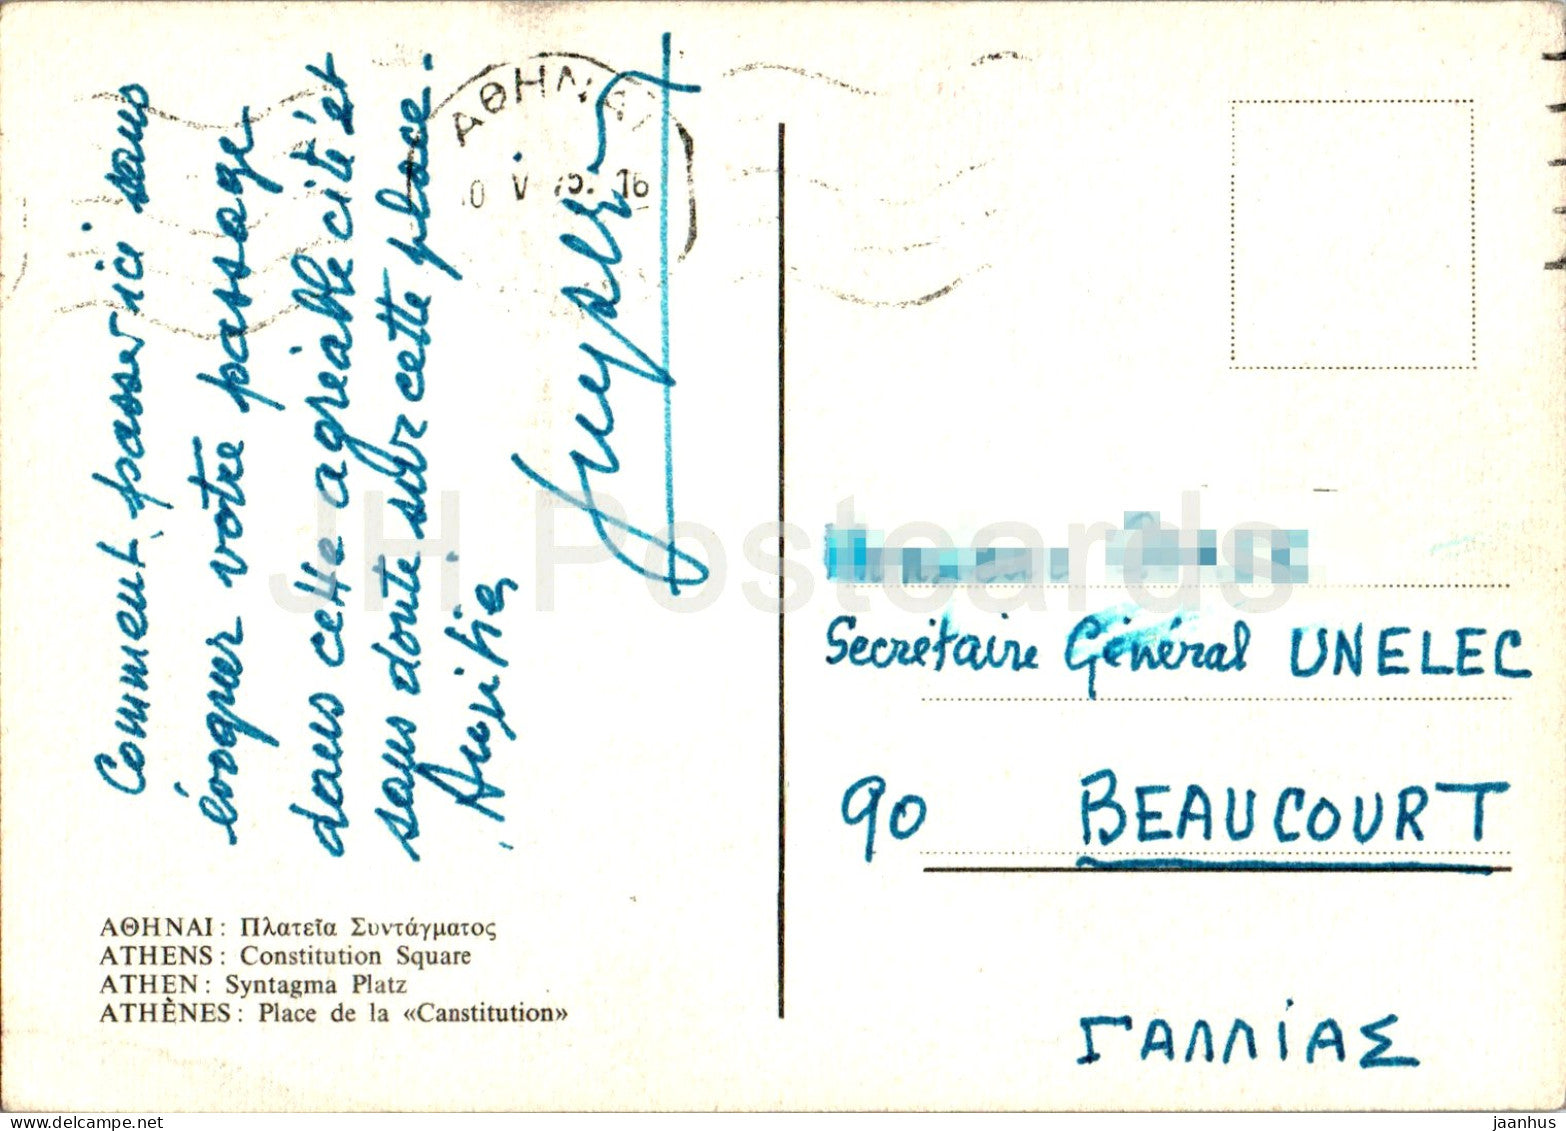 Comment passer ici sans
évoquer votre passage
dans cette agréable cité et
sans doute sur cette place.
Amitiés
ΑΘΗΝΑΙ
0 V 75. 16
Secrétaire Général UNELEC
90 BEAUCOURT
ΓΑΛΛΙΑΣ
ΑΘΗΝΑΙ: Πλατεῖα Συντάγματος
ATHENS: Constitution Square
ATHEN: Syntagma Platz
ATHÈNES: Place de la «Canstitution»
JH Postcards
delcampe.net
jaanhus